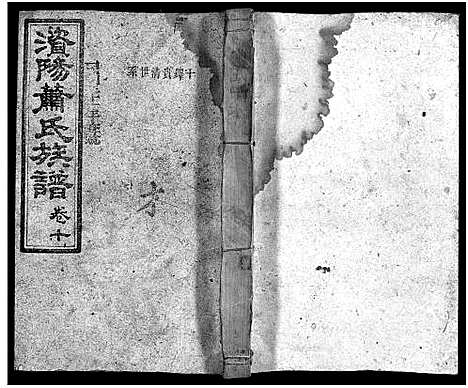 濱陽蕭氏族譜 卷十
十鐸貴清世系
才